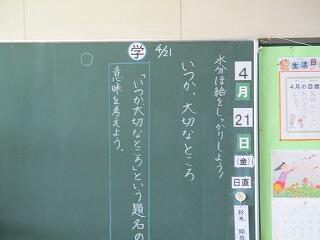 4月21日(金)
日直
鈴木
水分ほ給をしっかりしよう!
いつか、大切なところ
4/21
学
「いつか大切なところ」という題名の
意味を考えよう。
生活目
4月の目標